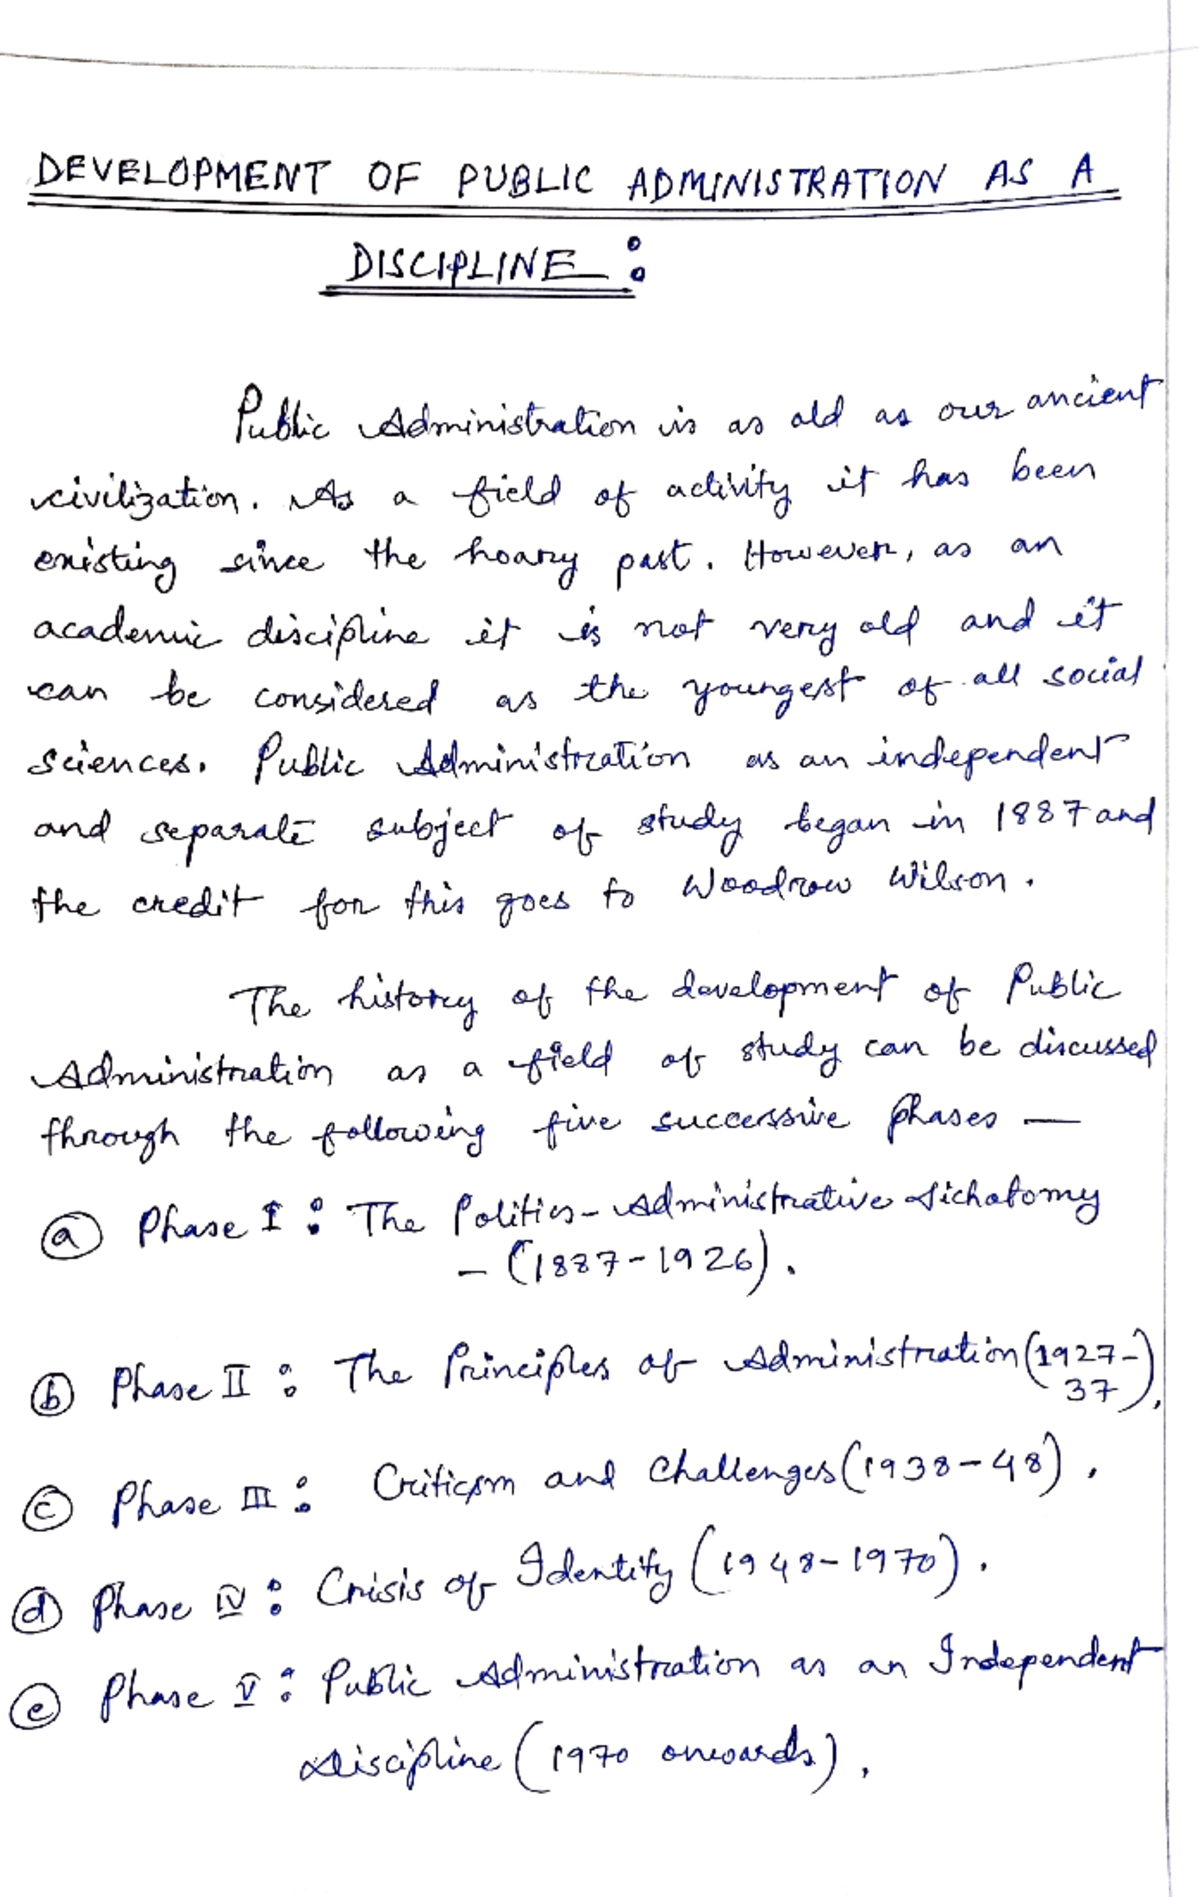 DEVELOPMENT OF PUBLIC ADMINISTRATION AS A
DISCIPLINE :
Public Administration is as old as our ancient
civilization. As a field of activity it has been
existing since the hoary past. However, as an
academic discipline it is not very old and it
can be considered as the youngest of all social
sciences. Public Administration as an independent
and separate subject of study began in 1887 and
the credit for this goes to Woodrow Wilson.
The history of the development of Public
Administration as a field of study can be discussed
through the following five successive phases —
(a) Phase I : The Politics-Administrative dichotomy
- (1887-1926).
(b) Phase II : The Principles of Administration (1927-
37).
(c) Phase III : Criticism and Challenges (1938-48).
(d) Phase IV : Crisis of Identity (1948-1970).
(e) Phase V : Public Administration as an Independent
Discipline (1970 onwards).